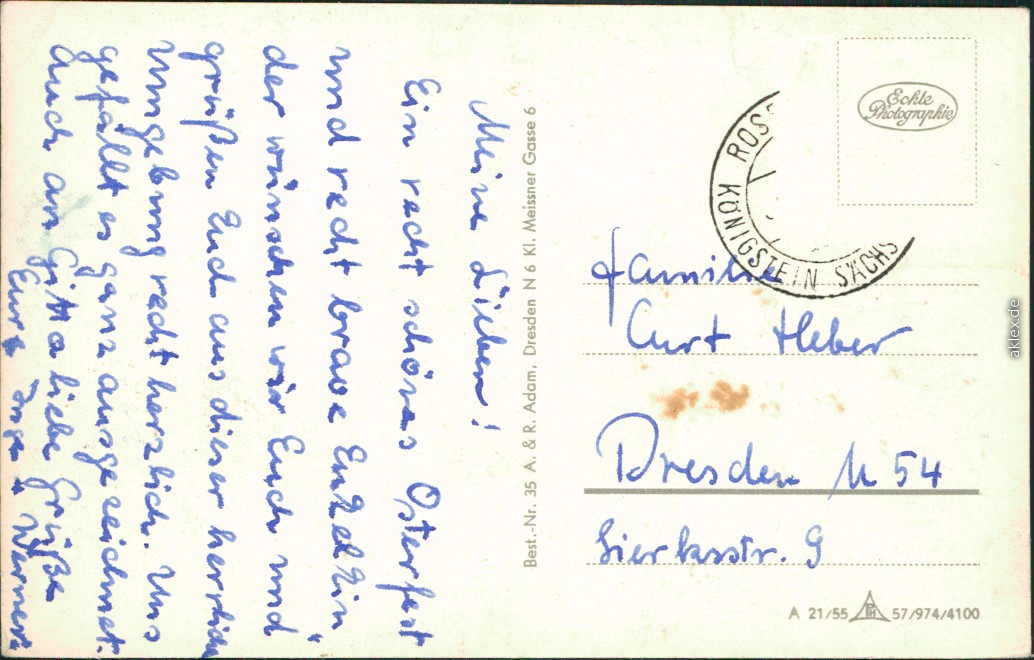 Meine Lieben!
Ein recht schönes Osterfest
und recht brave Enkelin
der wünschen wir Euch und
grüßen Euch aus dieser herrlichen
Umgebung recht herzlich. Uns
gefällt es ganz ausgezeichnet.
Auch an Gitta liebe Grüße
Eure Inge + Werner
Best.-Nr. 35 A. & R. Adam, Dresden N 6 Kl. Meissner Gasse 6
Echte
Photographie
KÖNIGSTEIN SÄCHS
Familie
Curt Heber
Dresden N 54
9
A 21/55 57/974/4100
aklex.de